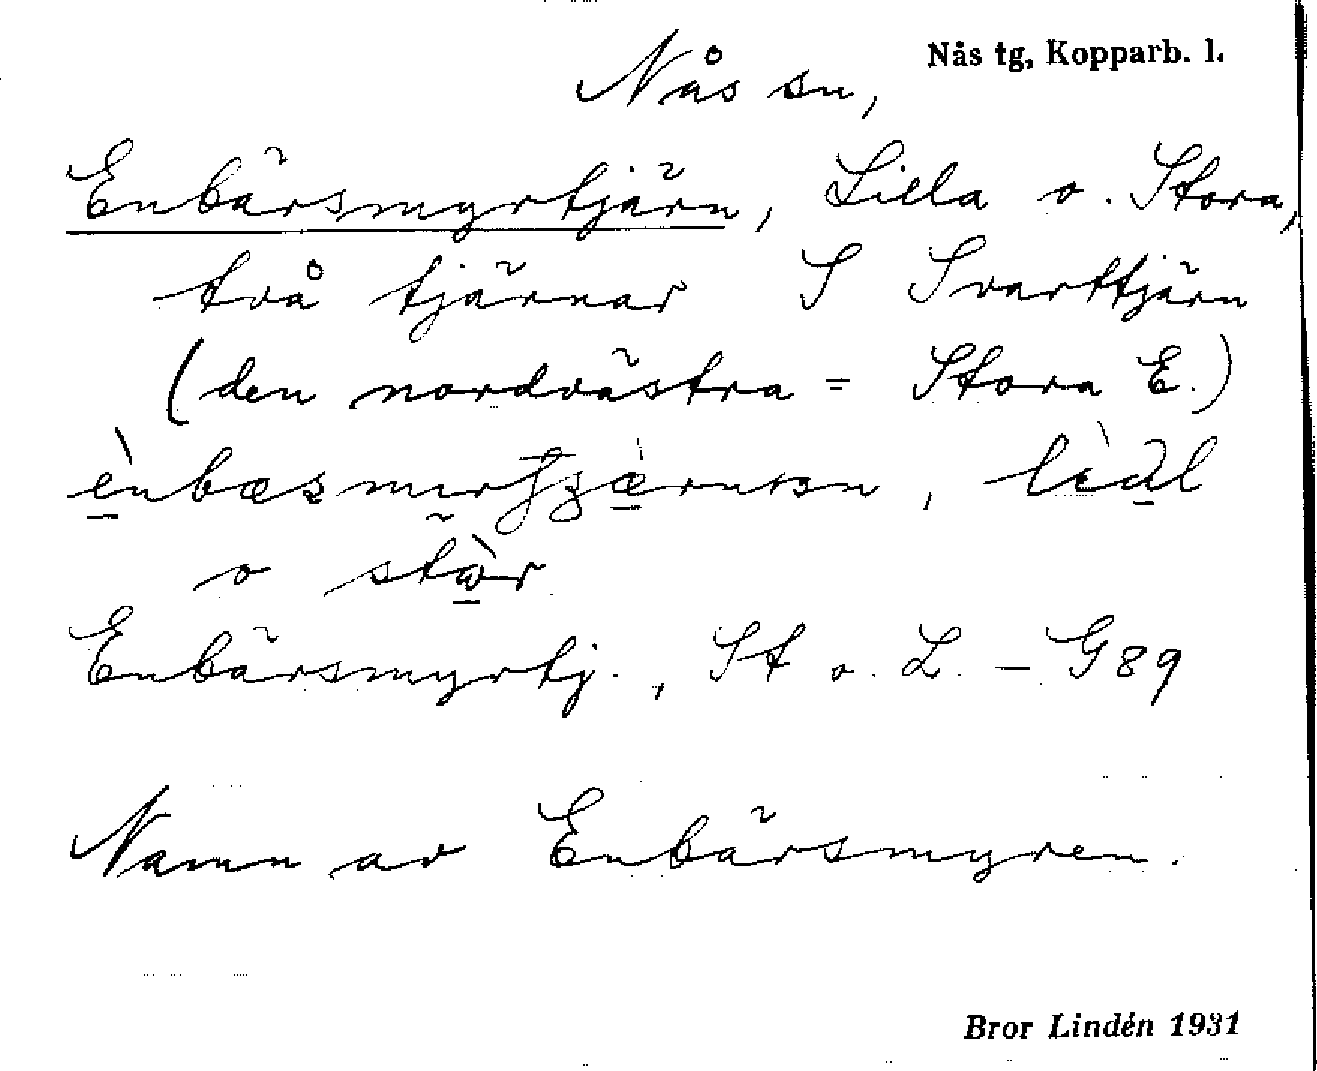 Nås tg, Kopparb. l.
Nås sn,
Enbärsmyrtjärn, Lilla o. Stora,
två tjärnar S Svarttjärn
(den nordvästra = Stora E.)
o stòr
Enbärsmyrtj., St o. L. – G89
Namn av Enbärsmyren.
Bror Lindén 1931